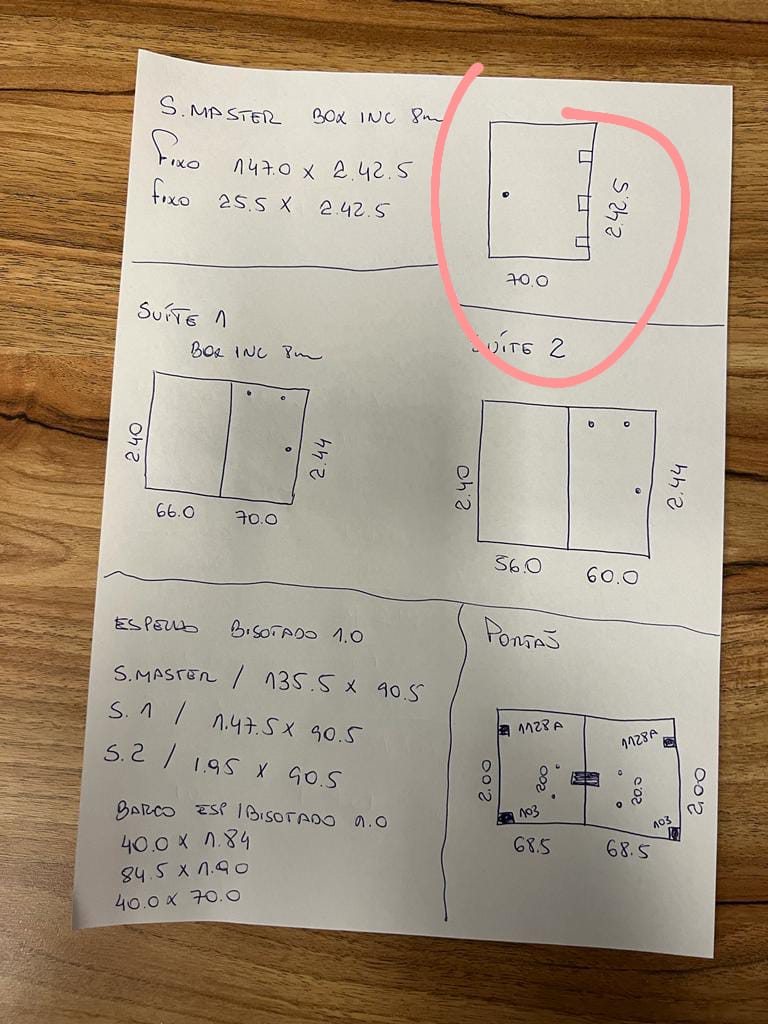 S.MASTER BOX INC 8m
Fixo 147.0 x 2.42.5
fixo 25.5 x 2.42.5
2.42.5
70.0
SUÍTE 1
BOX INC 8m
2.40
2.44
66.0 70.0
SUÍTE 2
2.40
2.44
56.0 60.0
ESPELHO BISOTADO 1.0
S.MASTER / 135.5 x 90.5
S. 1 / 1.47.5 x 90.5
S. 2 / 1.95 x 90.5
BARCO ESP/BISOTADO 1.0
40.0 x 1.84
84.5 x 1.90
40.0 x 70.0
PORTAS
1128A 1128A
2.00 200 20.0 2.00
103 103
68.5 68.5